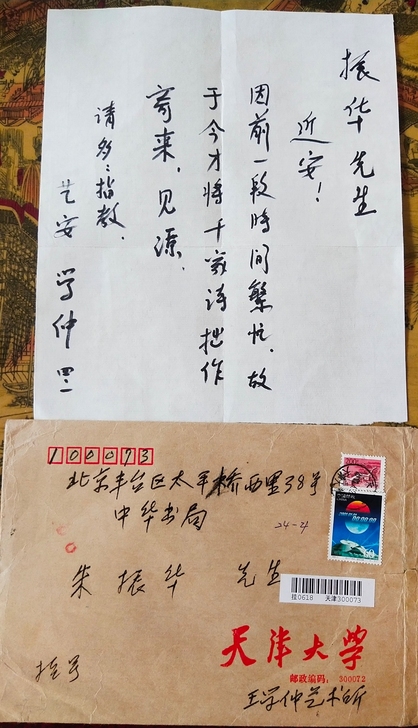 振华先生
近安！
因前一段時间繁忙，故
于今才将千家诗拙作
寄来，见谅，
请多々指教，
艺安 学仲
100073
北京丰台区太平桥西里38号
中华书局
24-4
朱振华 先生
挂0618 天津300073
天津大学
邮政编码：300072
王学仲艺术所
挂号